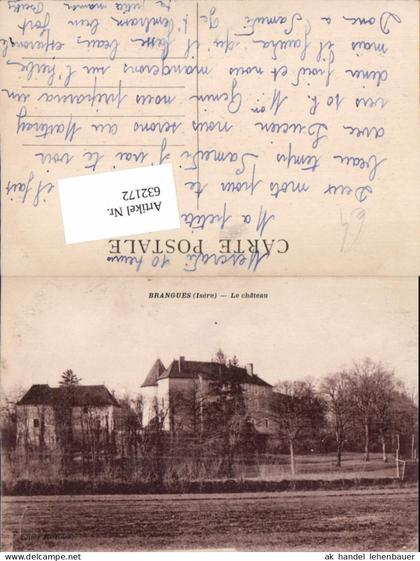 Mercredi 10 heures
CARTE POSTALE
69
Ma petite
Deux mots pour te il fait
beau temps Samedi j'irai te voir
avec Lucien nous serons au
vers 10 h. Genin nous préparera un
diner froid et nous mangerons sur l'herbe
mais il faudra qu'il fasse beau, espérons
Donc a Samedi Je t'embrasse bien fort
ta petite maman
Artikel Nr.
632172
BRANGUES (Isère) — Le château
ak handel lehenbauer